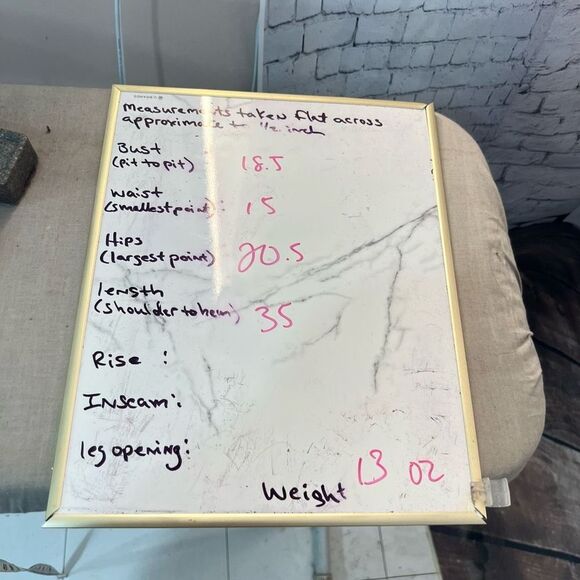 Measurements taken flat across
approximate 1/2 inch
Bust
(pit to pit) 18.5
waist
(smallest point): 15
Hips
(largest point) 20.5
length
(shoulder to hem) 35
Rise :
Inseam:
leg opening:
Weight 13 oz